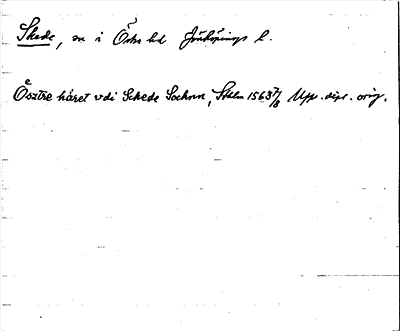 Skede, sn i Östra hd Jönköpings l.
Ősztre häret vdi Schede Sochnn, Sthlm 1563 7/8 Upps. dipl. orig.